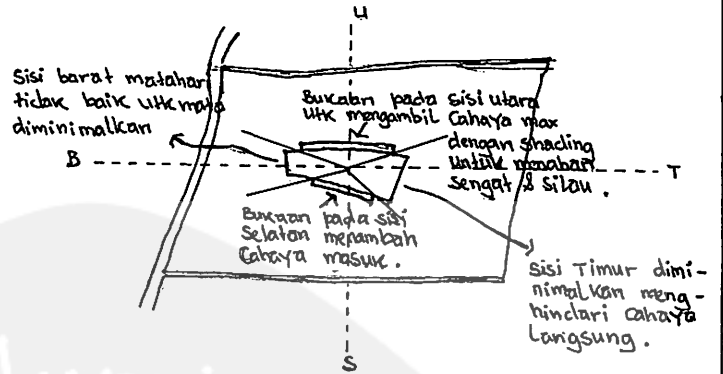 U
Sisi barat matahari
tidak baik utk mata
diminimalkan
Bukaan pada sisi utara
utk mengambil cahaya max
dengan shading
untuk menahan
sengat & silau.
B
T
Bukaan pada sisi
Selatan menambah
cahaya masuk.
Sisi Timur dimi-
nimalkan meng-
hindari cahaya
langsung.
S